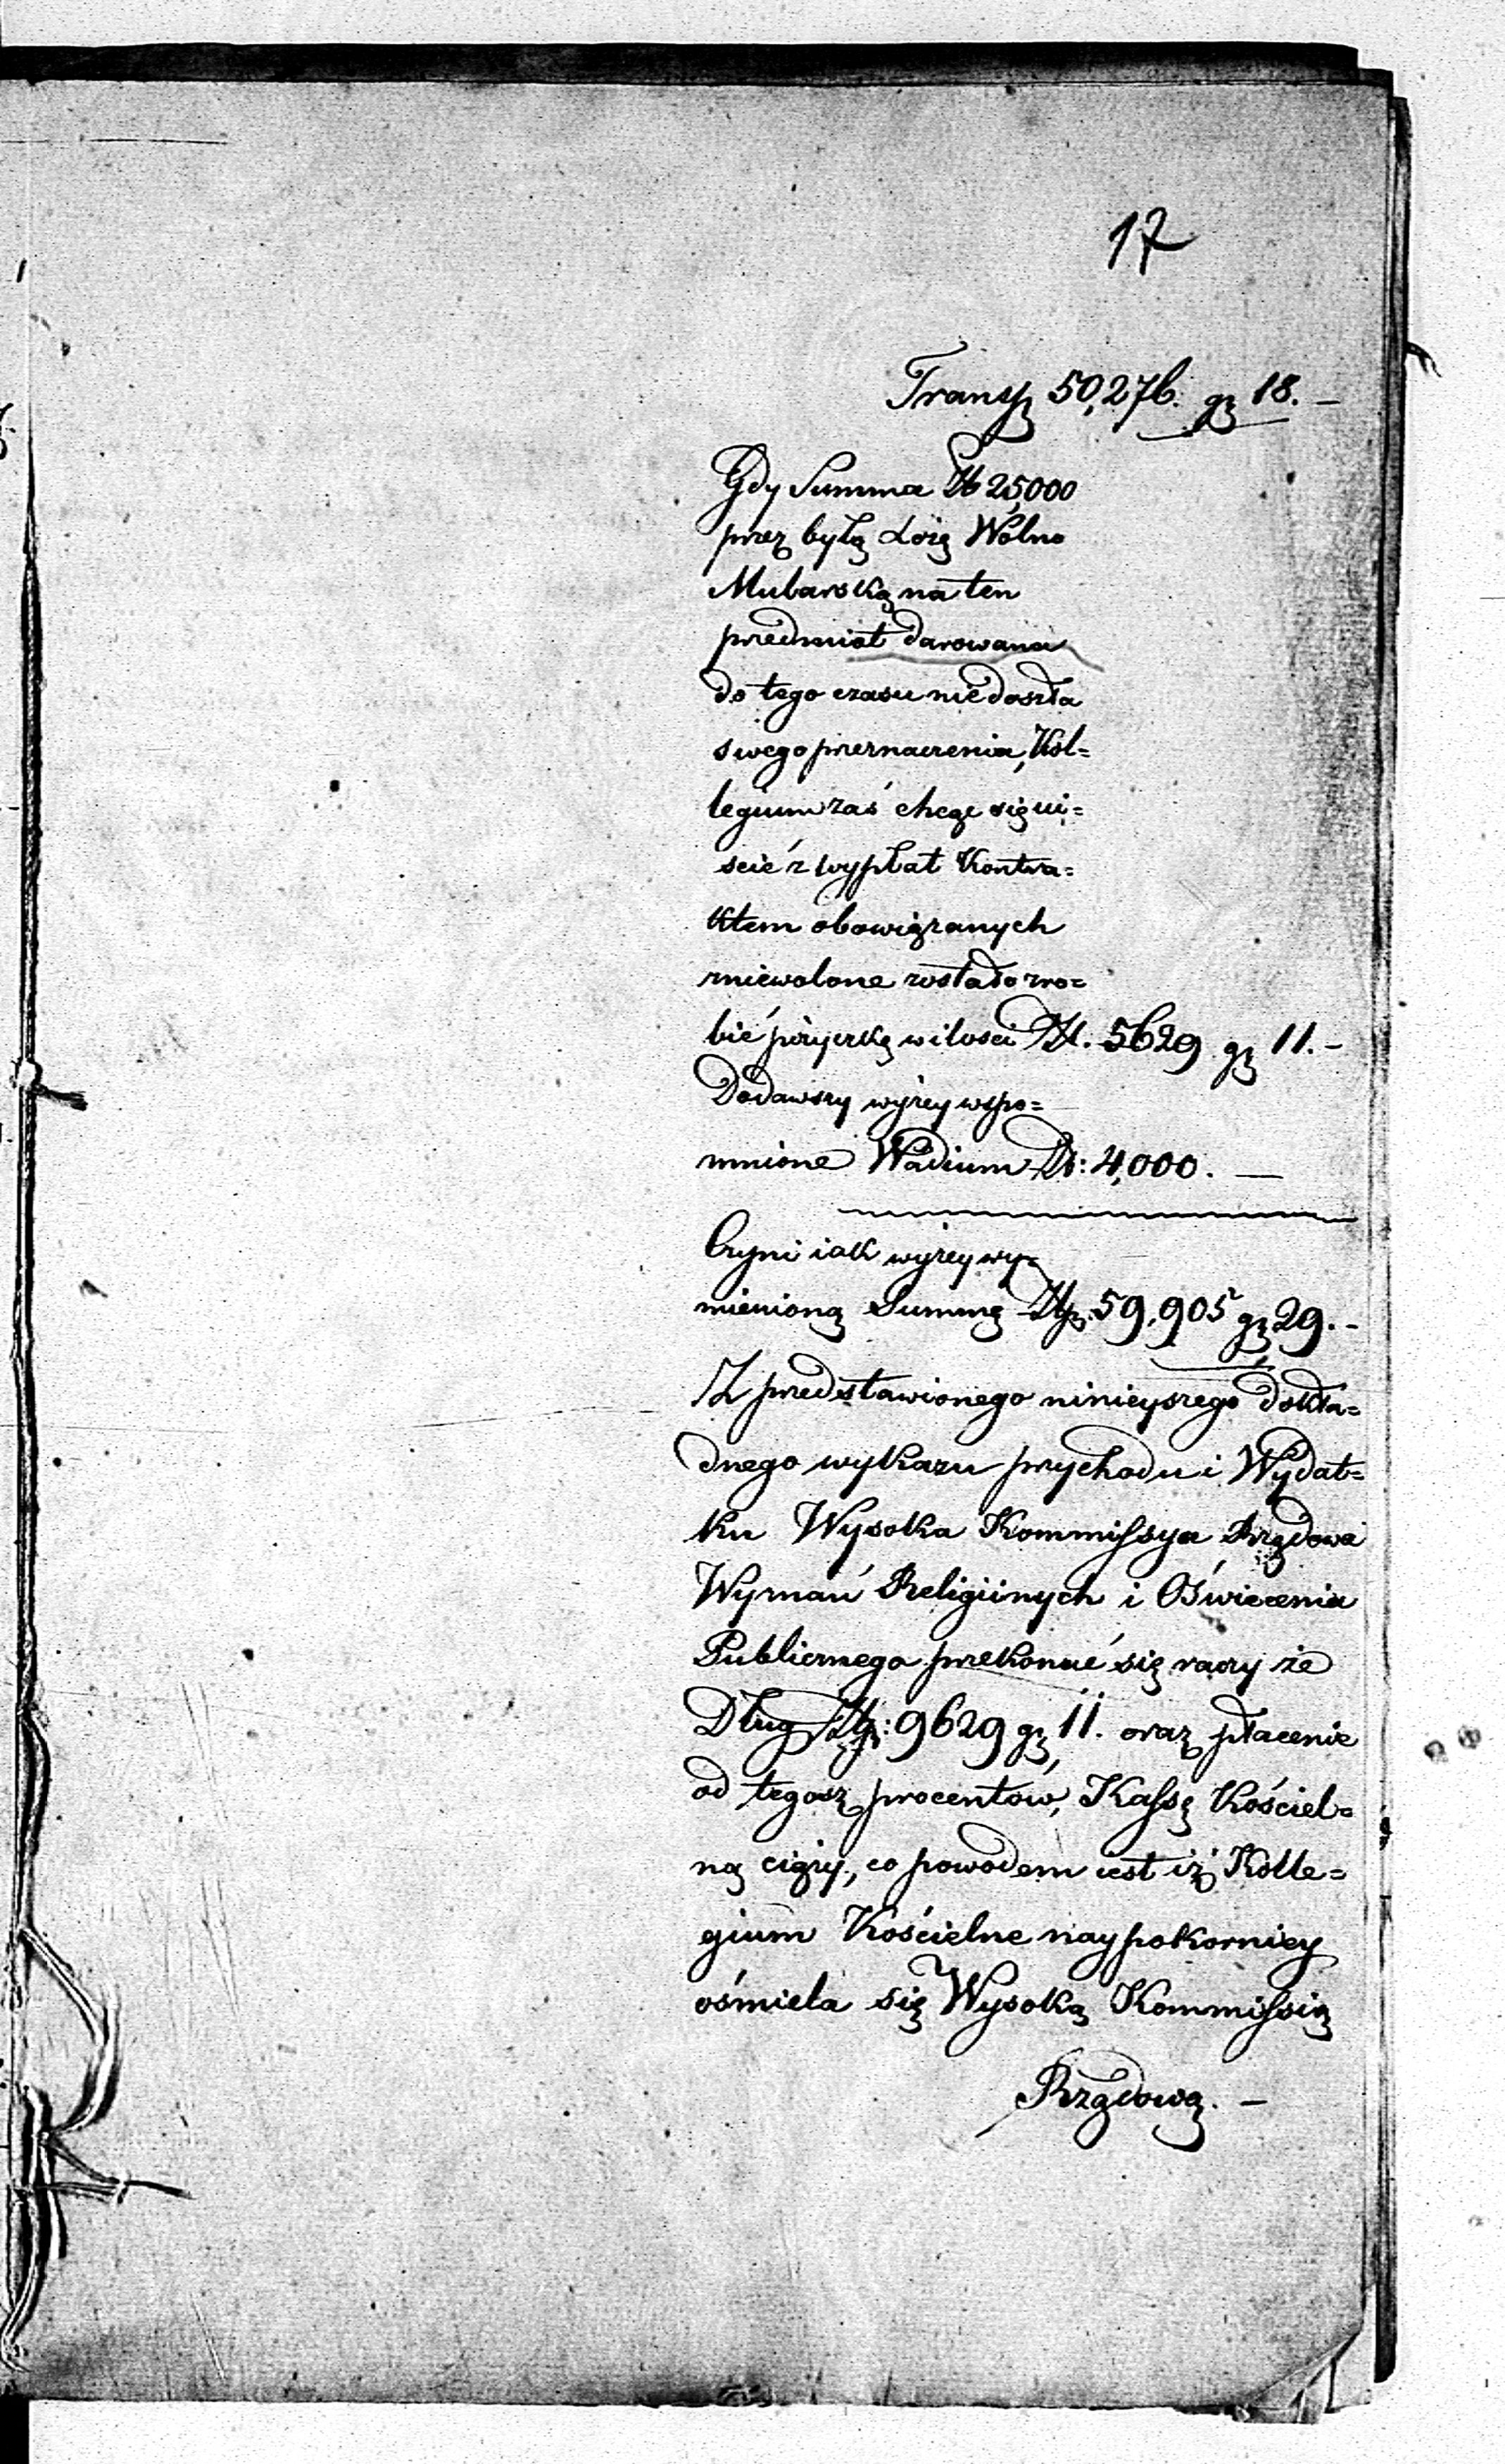 17
Transp 50,276. gr 18. -
Gdy Summa Zł 25,000
przez byłą Lożę Wolno
Mularską na ten
przedmiot darowana
do tego czasu nie doszła
swego przeznaczenia, Kol=
legium zaś chcąc się ui=
ścić z wypłat Kontra=
ktem obowiązanych
zniewolone zostało zro=
bić pożyczkę w ilości Zł. 5629 gr 11. -
Dodawszy wyżey wspo=
mnione Wadium Zł: 4,000. —
Czyni iak wyżey wy=
mienioną Summę Złp. 59,905 gr 29. -
Z przedstawionego ninieyszego dokła=
dnego wykazu przychodu i Wydat=
ku Wysoka Kommissya Rządowa
Wyznań Religiinych i Oświecenia
Publicznego przekonać się raczy że
Dług Złp: 9629 gr 11. oraz płacenie
od tegosz procentow, Kassę Kościel=
ną ciąży, co powodem iest iż Kolle=
gium Kościelne naypokorniey
ośmiela się Wysoką Kommissią
Rządową. -